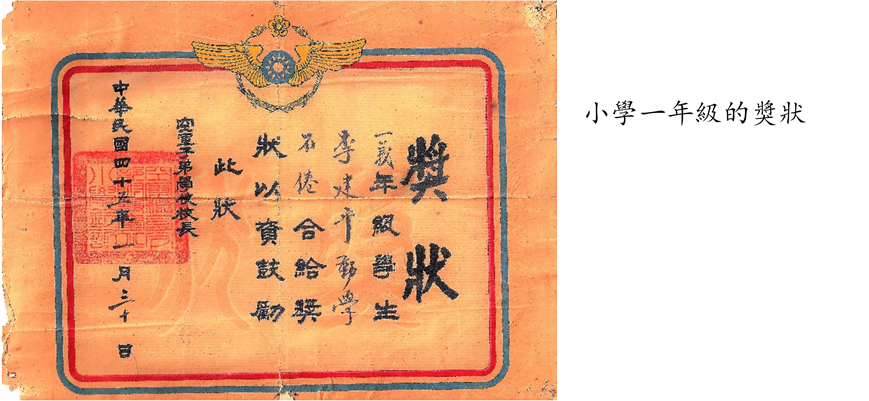 獎狀
一義年級學生
李建平勤學
不倦合給獎
狀以資鼓勵
此狀
空軍子弟學校校長
中華民國四十五年一月三十日
小學一年級的獎狀